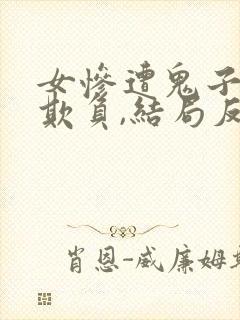 女惨遭鬼子
欺負,結局反
肖恩-威廉姆斯